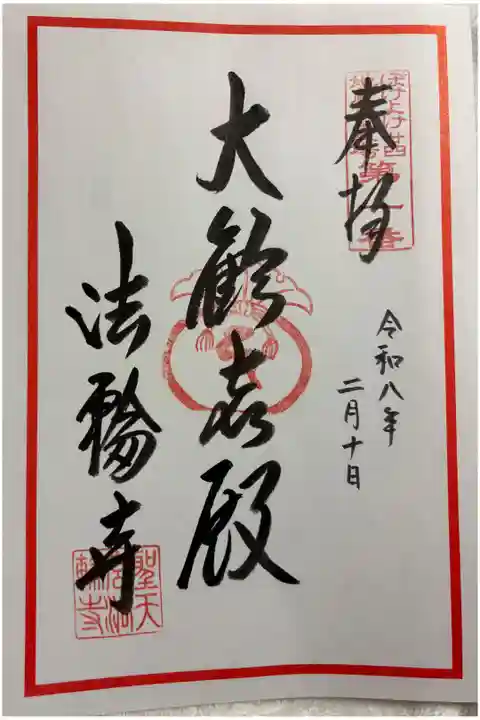 奉拝
令和八年
二月十日
大歓喜殿
法輪寺
聖天
法輪寺